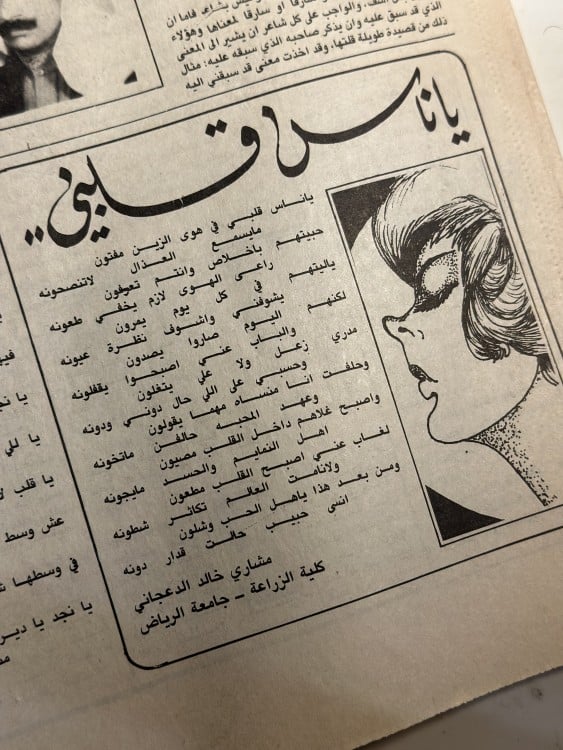 فاما ان
او سارقا لمعناها وهؤلاء
والواجب على كل شاعر ان يشير الى المعنى
الذي قد سبق عليه وان يذكر صاحبه الذي سبقه عليه: مثال
ذلك من قصيدة طويلة قلتها، وقد اخذت معنى قد سبقني اليه
ياناس قلبي..
ياناس قلبي في هوى الزين مفتون
مايسمع العذال لاتنصحونه
حبيتهم باخلاص وانتم تعرفون
راعى الهوى لازم يخفي طعونه
ياليتهم في كل يوم يمرون
يشوفني واشوف نظرة عيونه
لكنهم اليوم صاروا يصدون
والباب عني اصبحوا يقفلونه
مدري زعل ولا علي يتغلون
وحسبي على اللي حال دوني ودونه
وحلفت انا منساه مهما يقولون
وعهد المحبه حالفن ماتخونه
واصبح غلاهم داخل القلب مصيون
اهل النمايم والحسد مايجونه
لغاب عني اصبح القلب مطعون
ولانامت العالم تكاثر شطونه
ومن بعد هذا ياهل الحب وشلون
انسى حبيب حالت قدار دونه
مشاري خالد الدعجاني
كلية الزراعة ـ جامعة الرياض
يا نجد
يا للي
يا قلب
عش وسط
في وسطها
يا نجد يا